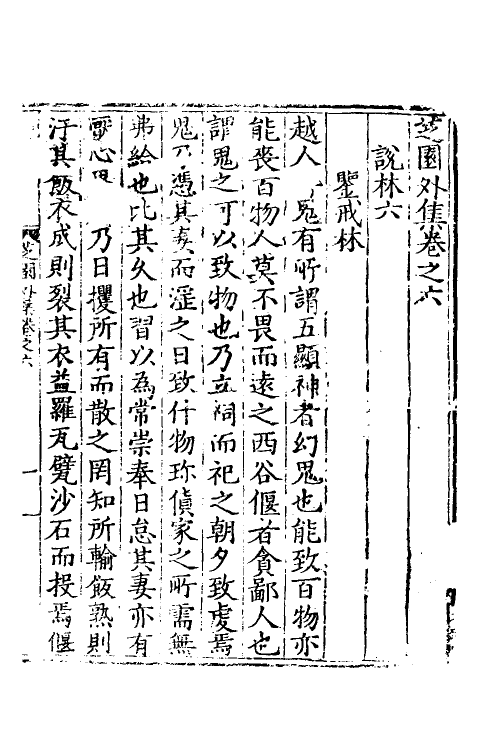 芝園外集卷之六
說林六
鑒戒林
越人鬼有所謂五顯神者幻鬼也能致百物亦
能喪百物人莫不畏而遠之西谷偃者貪鄙人也
謂鬼之可以致物也乃立祠而祀之朝夕致虔焉
鬼乃憑其妻而淫之日致什物珎償家之所需無
弗給也比其久也習以為常崇奉日怠其妻亦有
心乃日攫所有而散之罔知所輸飯熟則
汙其飯衣成則裂其衣益羅瓦甓沙石而投焉偃
芝園外集卷之六
一